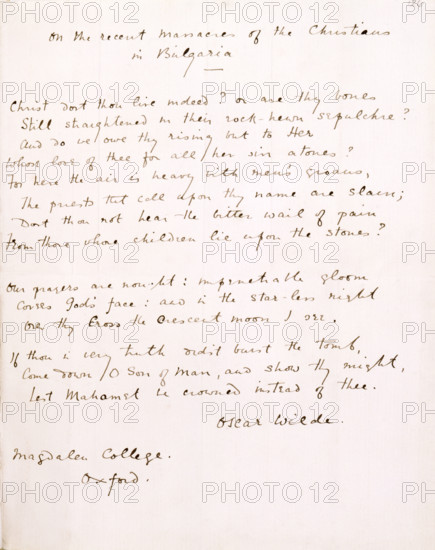 On the recent massacres of the Christians
in Bulgaria
Christ dost thou live indeed? or are thy bones
Still straightened in their rock-hewn sepulchre?
And do we owe thy rising but to Her
Whose love of thee for all her sin atones?
For here the air is heavy with men's groans,
The priests that call upon thy name are slain;
Dost thou not hear the bitter wail of pain
From those whose children lie upon the stones?
Our prayers are nought: impenetrable gloom
Covers God's face: and in the star-less night
Over thy Cross the Crescent moon I see.
If thou in very truth didst burst the tomb,
Come down, O Son of Man, and show thy might,
Lest Mahomet be crowned instead of thee.
Oscar Wilde.
Magdalen College.
Oxford.
PHOTO 12